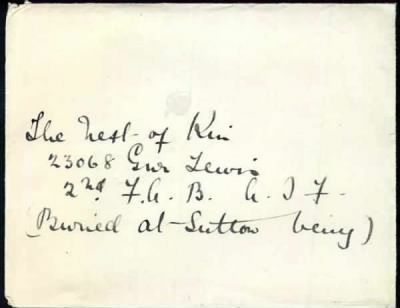 The Next of Kin
23068 Gnr Lewis
2nd F.A.B. A.I.F.
(Buried at Sutton Veny)